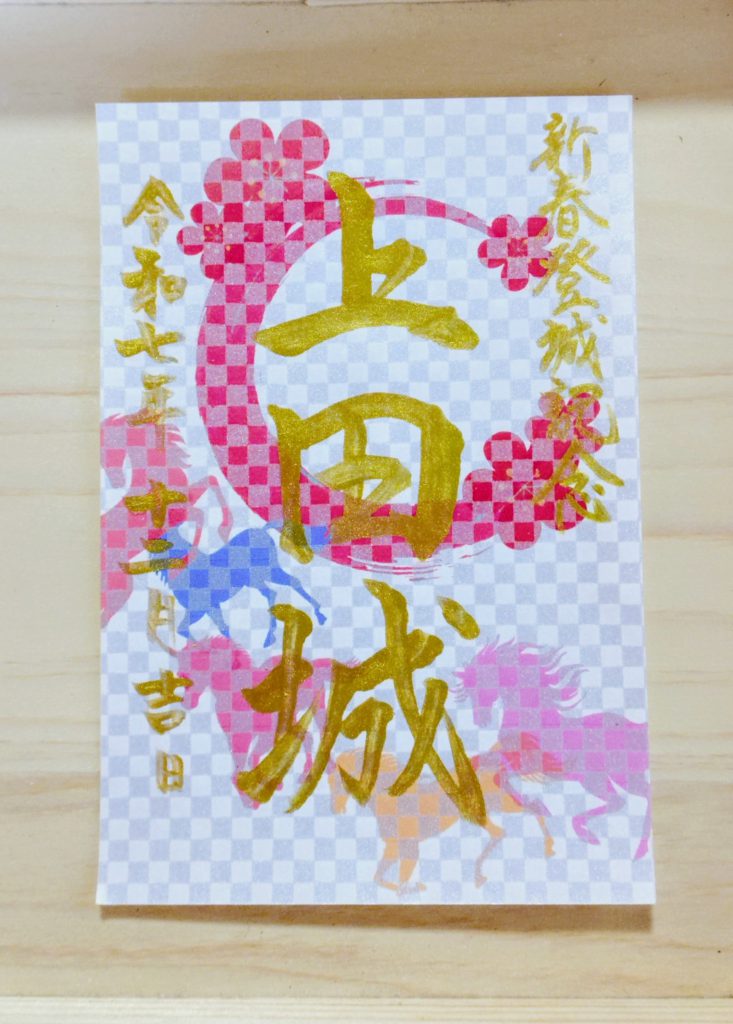 新春登城記念
上田城
令和七年十二月吉日